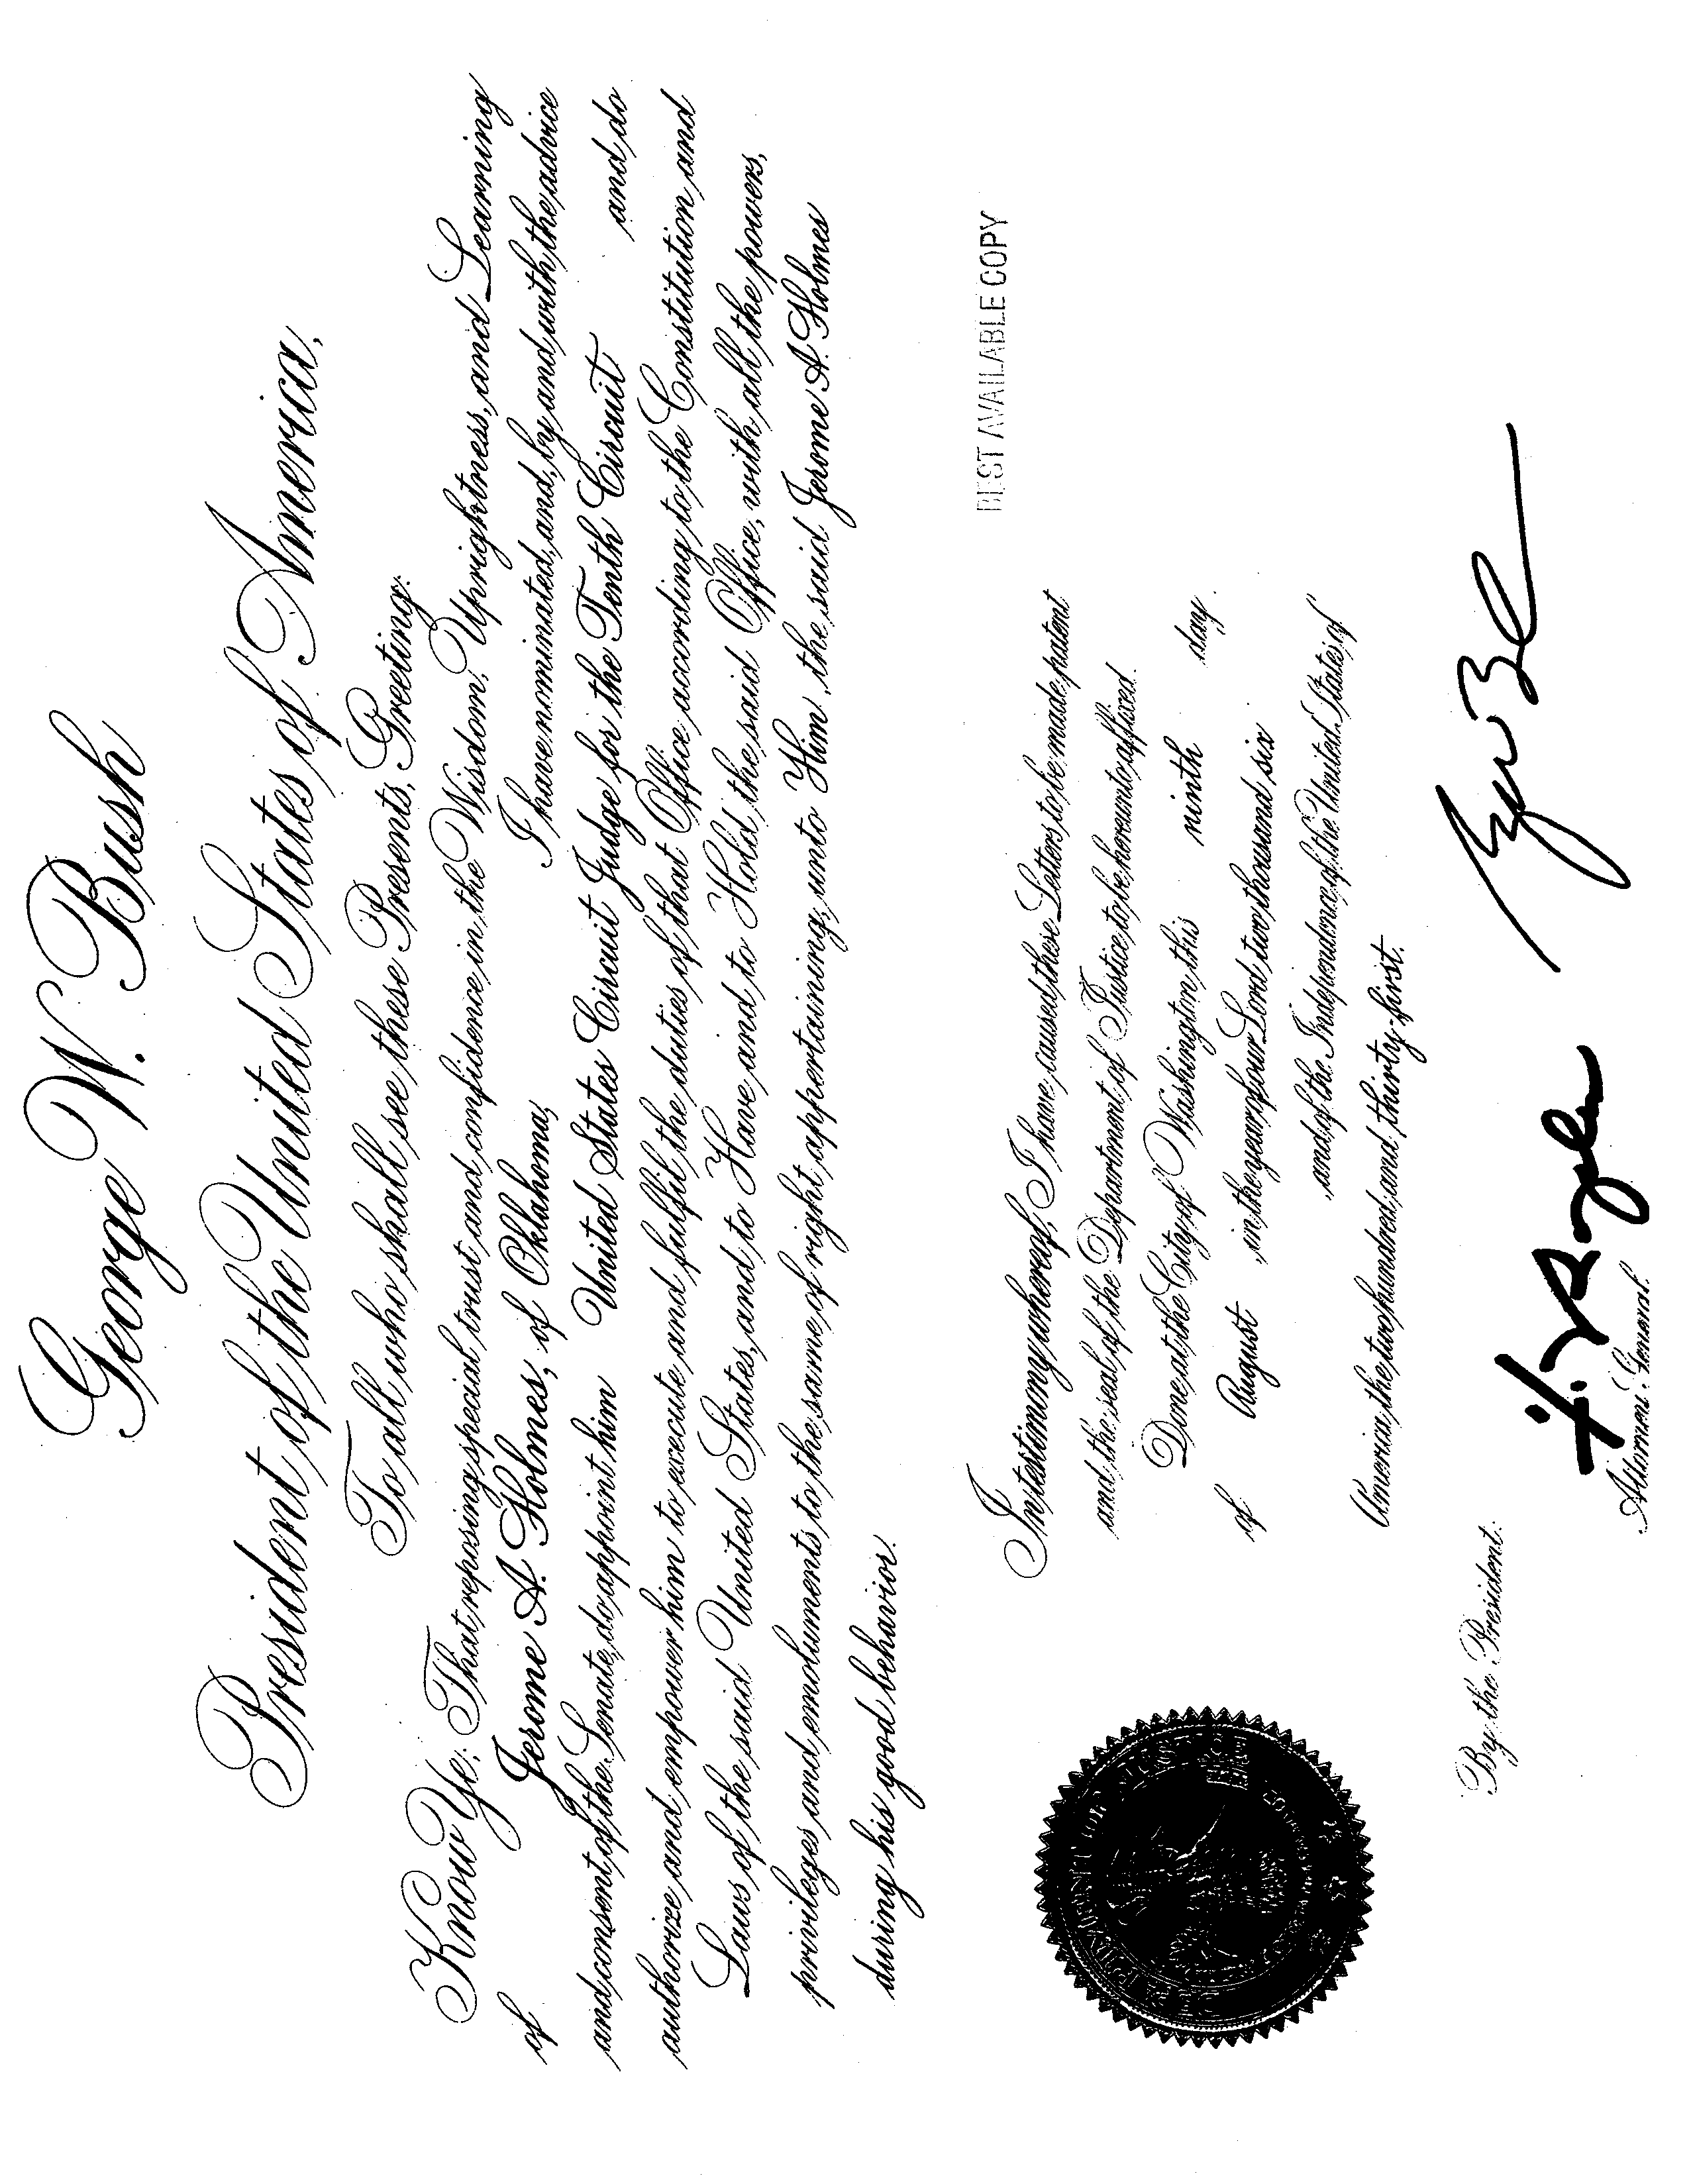 George W. Bush
President of the United States of America,
To all who shall see these Presents, Greeting:
Know Ye; That reposing special trust and confidence in the Wisdom, Uprightness, and Learning
of Jerome A. Holmes, of Oklahoma, I have nominated, and, by and with the advice
and consent of the Senate, do appoint him United States Circuit Judge for the Tenth Circuit and do
authorize and empower him to execute and fulfil the duties of that Office according to the Constitution and
Laws of the said United States, and to Have and to Hold the said Office, with all the powers,
privileges and emoluments to the same of right appertaining, unto Him, the said Jerome A. Holmes
during his good behavior.
BEST AVAILABLE COPY
In testimony whereof, I have caused these Letters to be made patent
and the seal of the Department of Justice to be hereunto affixed.
Done at the City of Washington this ninth day
of August in the year of our Lord two thousand six
and of the Independence of the United States of
America the two hundred and thirty-first.
By the President:
Attorney General.
DEPARTMENT OF JUSTICE